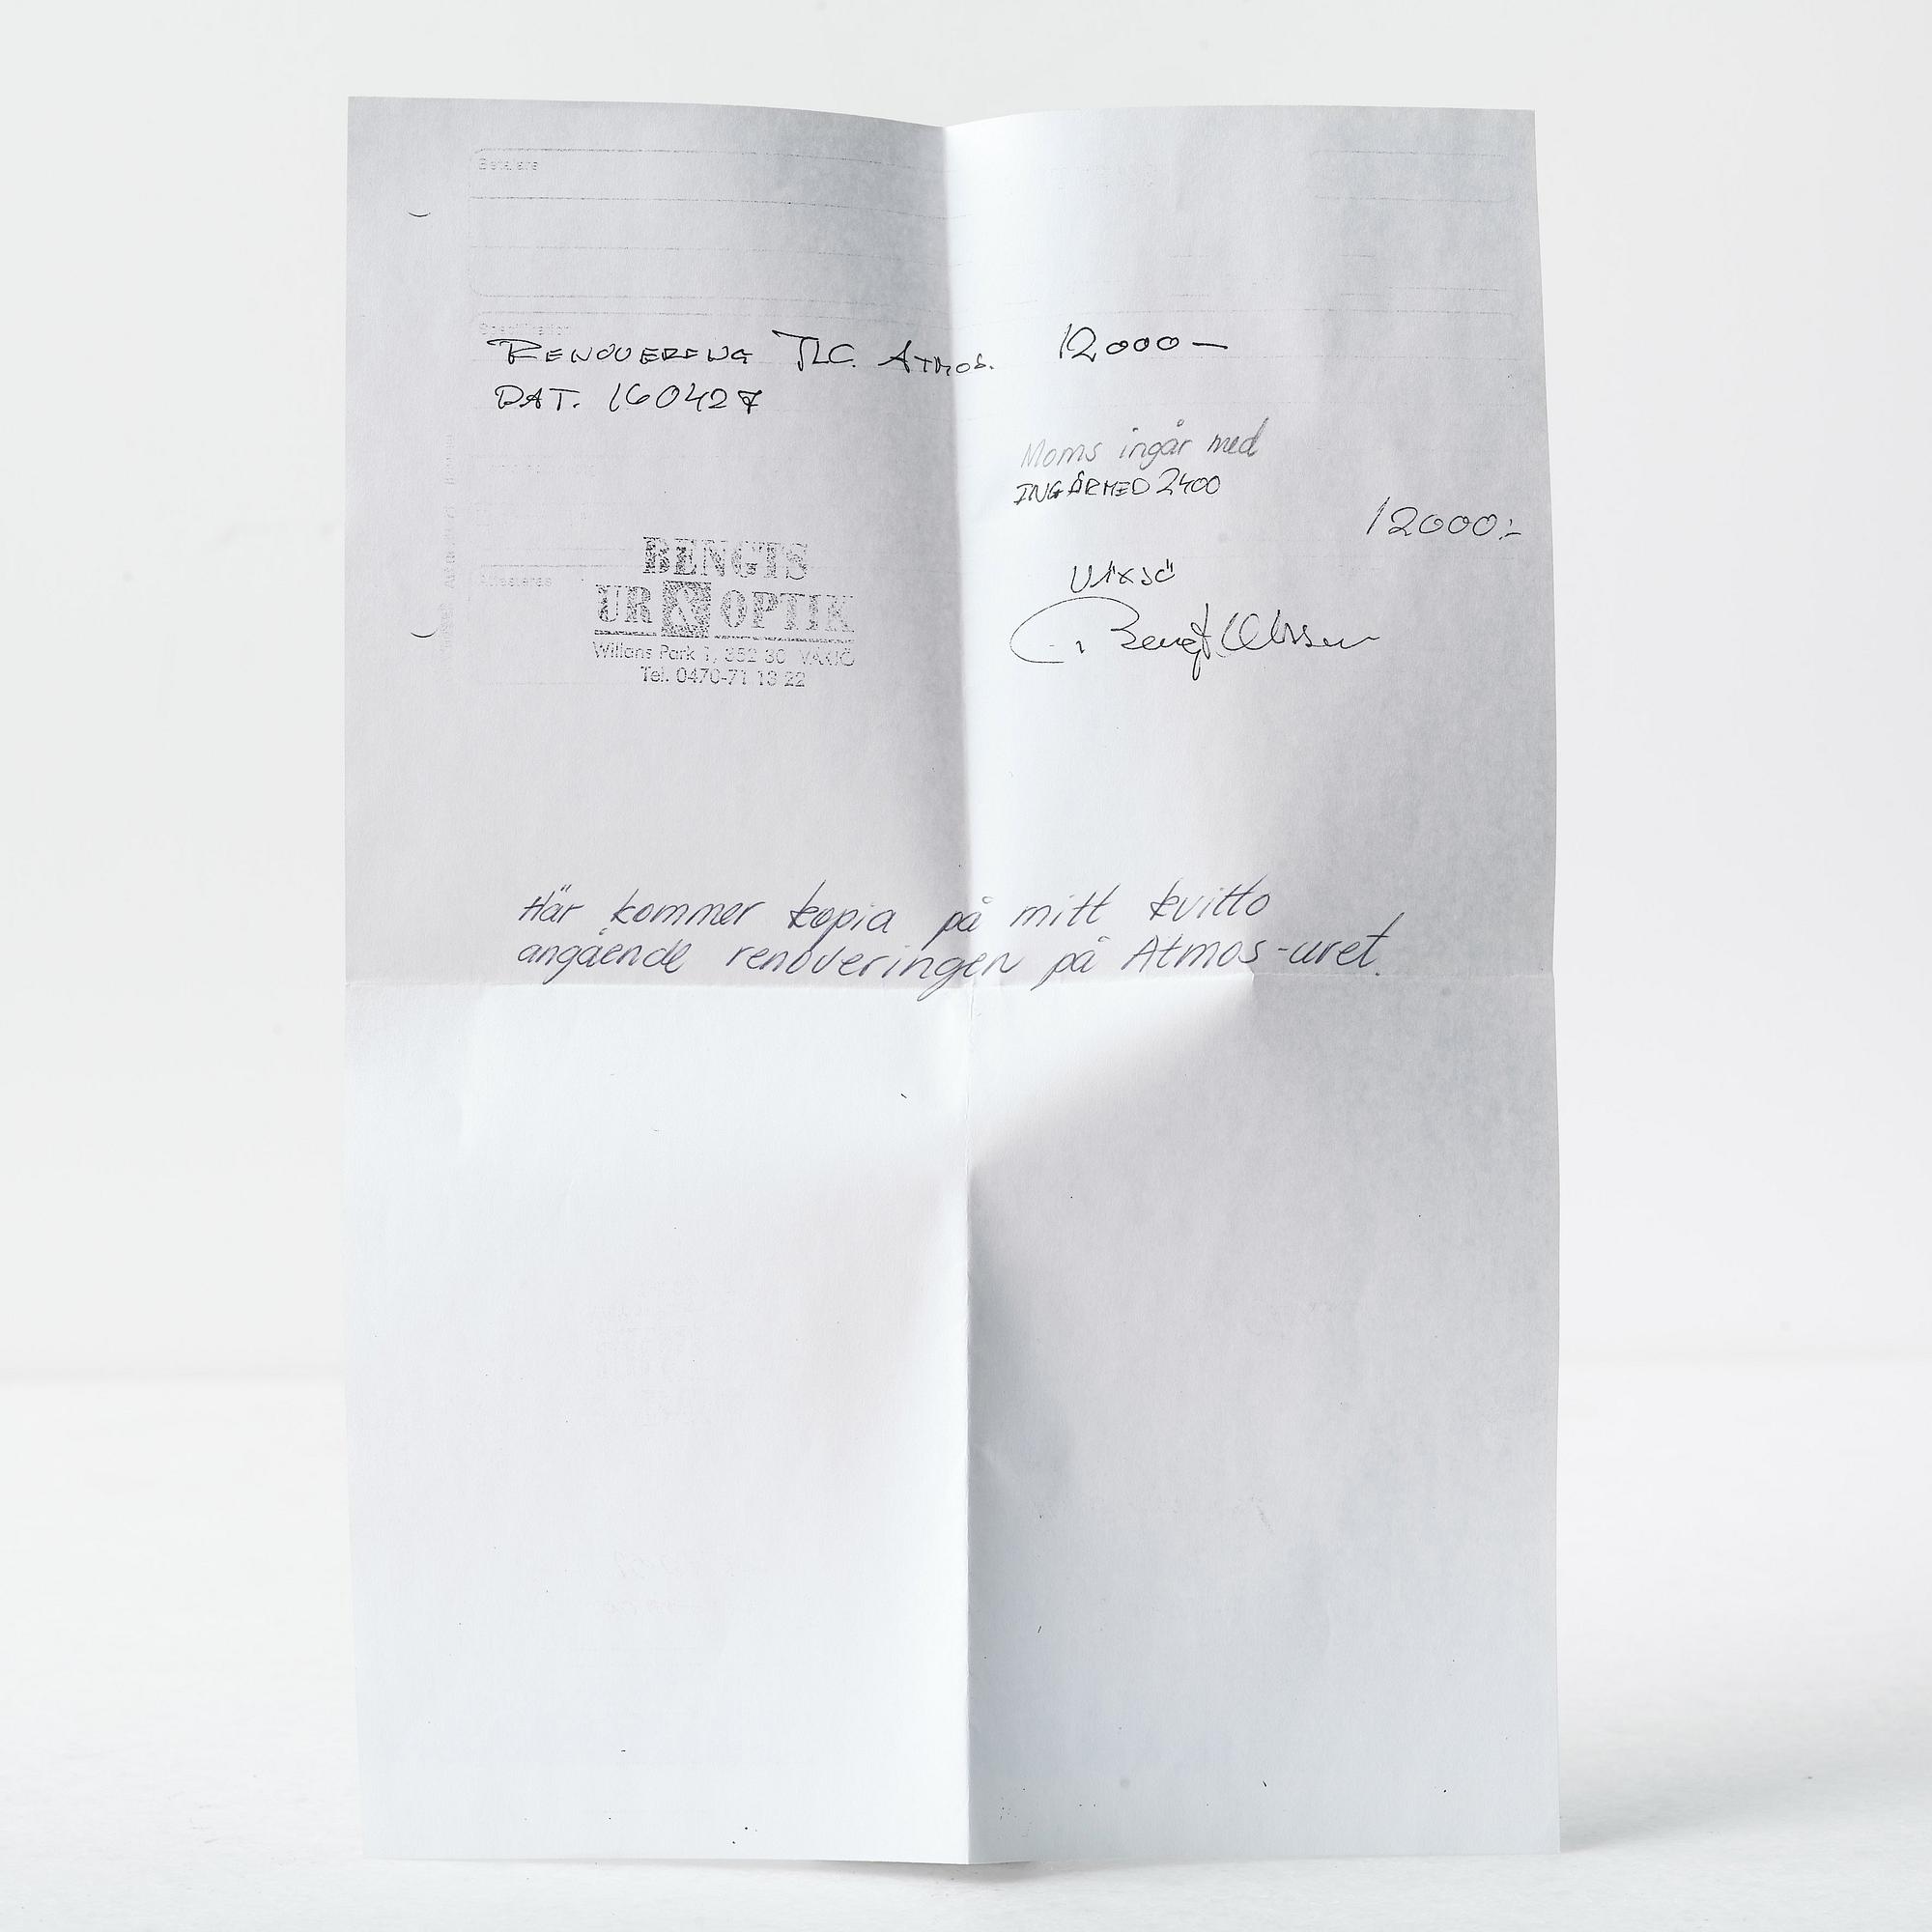 Betalare
Specifikation
RENOVERING JLC. ATMOS. 12000—
DAT. 160427
Moms ingår med
INGÅR MED 2400
12000:-
Attesteras
BENGTS
UR & OPTIK
Willans Park 1, 352 30 VÄXJÖ
Tel. 0470-71 13 22
VÄXJÖ
Bengt
Här kommer kopia på mitt kvitto
angående renoveringen på Atmos-uret.